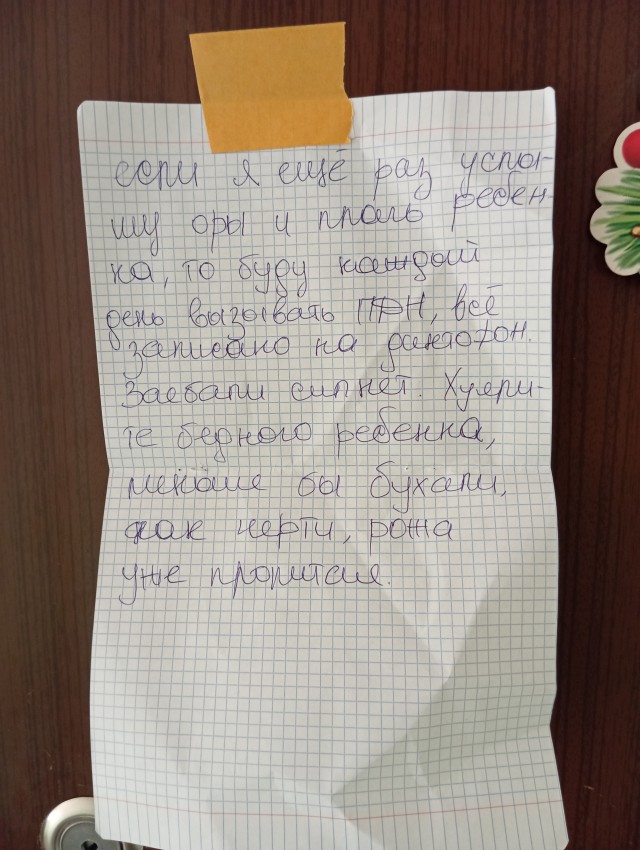 если я ещё раз услы-
шу оры и плачь ребен-
ка, то буду каждый
день вызывать ПДН, всё
записано на диктофон.
Заебали сил нет. Хуяри-
те бедного ребенка,
меньше бы бухали,
как черти, рожа
уже пропитая.